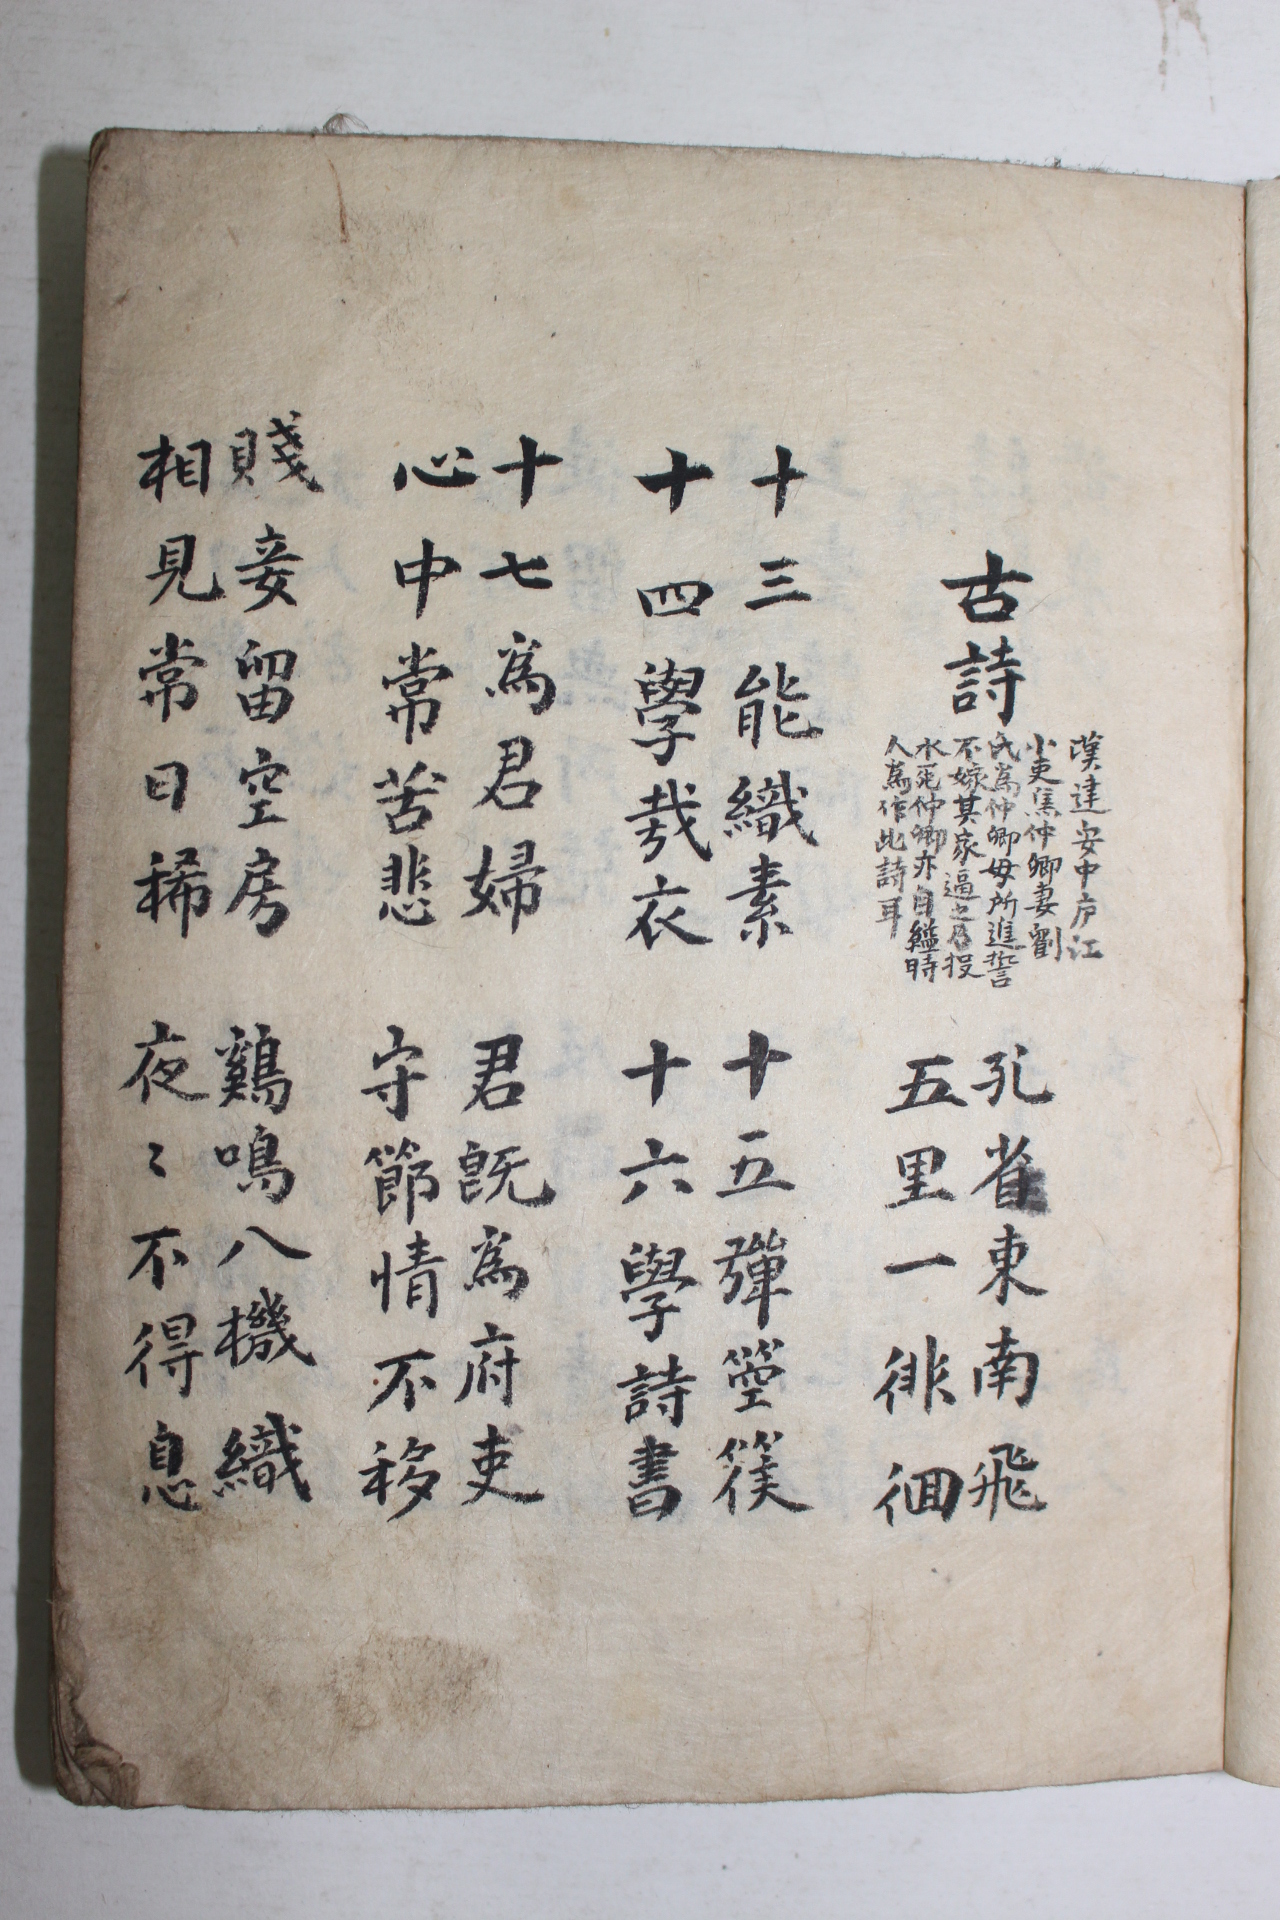 古詩
漢建安中庐江
小吏焦仲卿妻劉
氏為仲卿母所進誓
不嫁其家逼之乃投
水死仲卿亦自縊時
人為作此詩耳
孔雀東南飛
五里一徘徊
十三能織素
十五彈箜篌
十四學裁衣
十六學詩書
十七為君婦
君既為府吏
心中常苦悲
守節情不移
賤妾留空房
鷄鳴八機織
相見常日稀
夜〻不得息